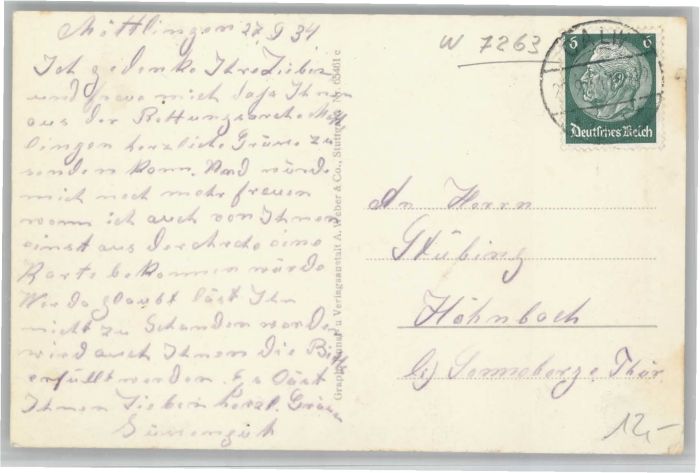 Möttlingen 27 9 34
Ich gedenke Ihre Lieben
und freue mich dass Ihnen
aus der Rettungsarche Mött
lingen herzliche Grüsse zu
senden kann. Und würde
mich noch mehr freuen
wenn ich auch von Ihnen
einst aus der Arche eine
Karte bekommen würde
Wer da glaubt läst Ihn
nicht zu Schanden werden
wird auch Ihnen die Bitt
erfüllt werden. Es läst
Ihnen Lieben herzl. Grüsse
Graph. u Verlagsanstalt A. Weber & Co., Stuttgart
W 7263
6 6
Deutsches Reich
An Herrn
Stübing
Höhnbach
b/ Sonneberg i. Thür.
12,-